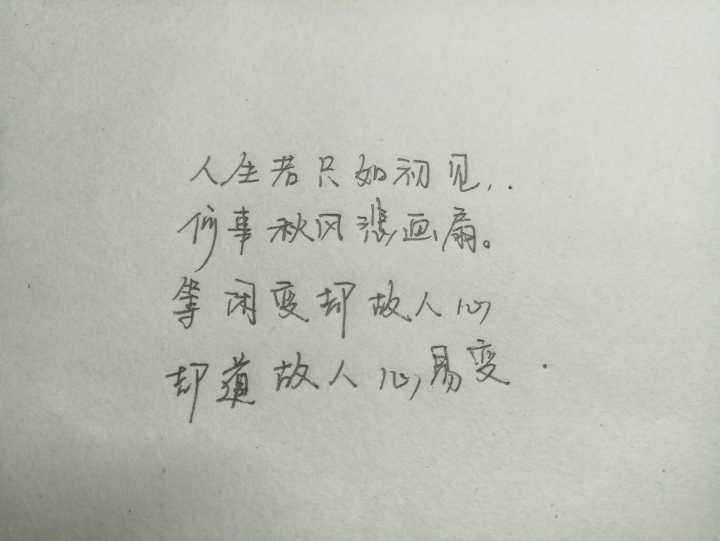 人生若只如初见..
何事秋风悲画扇。
等闲变却故人心
却道故人心易变.